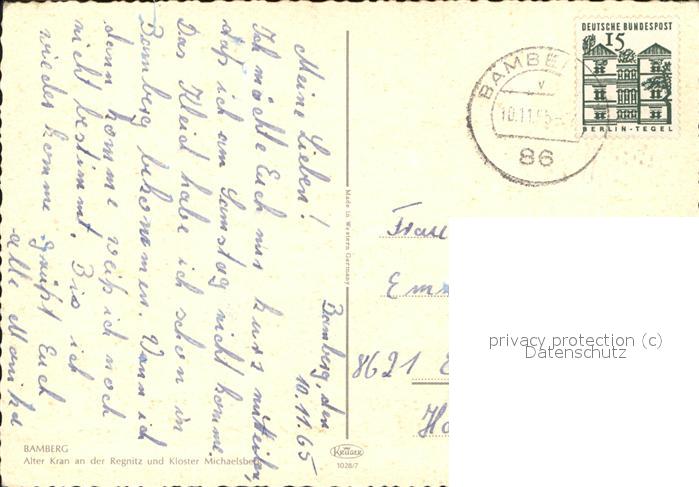 Bamberg, den
10.11.65
Meine Lieben!
Ich möchte Euch nur kurz mitteilen,
daß ich am Samstag nicht komme.
Das Kleid habe ich schon in
Bamberg bekommen. Wann ich
dann komme weiß ich noch
nicht bestimmt. Bis ich
wieder komme grüßt Euch
alle
BAMBERG
Alter Kran an der Regnitz und Kloster Michaelsberg
Made in Western Germany
KRÜGER
1028/7
DEUTSCHE BUNDESPOST
15
BERLIN-TEGEL
BAMBE
10.11.65
86
Frau
Em
8621
privacy protection (c)
Datenschutz